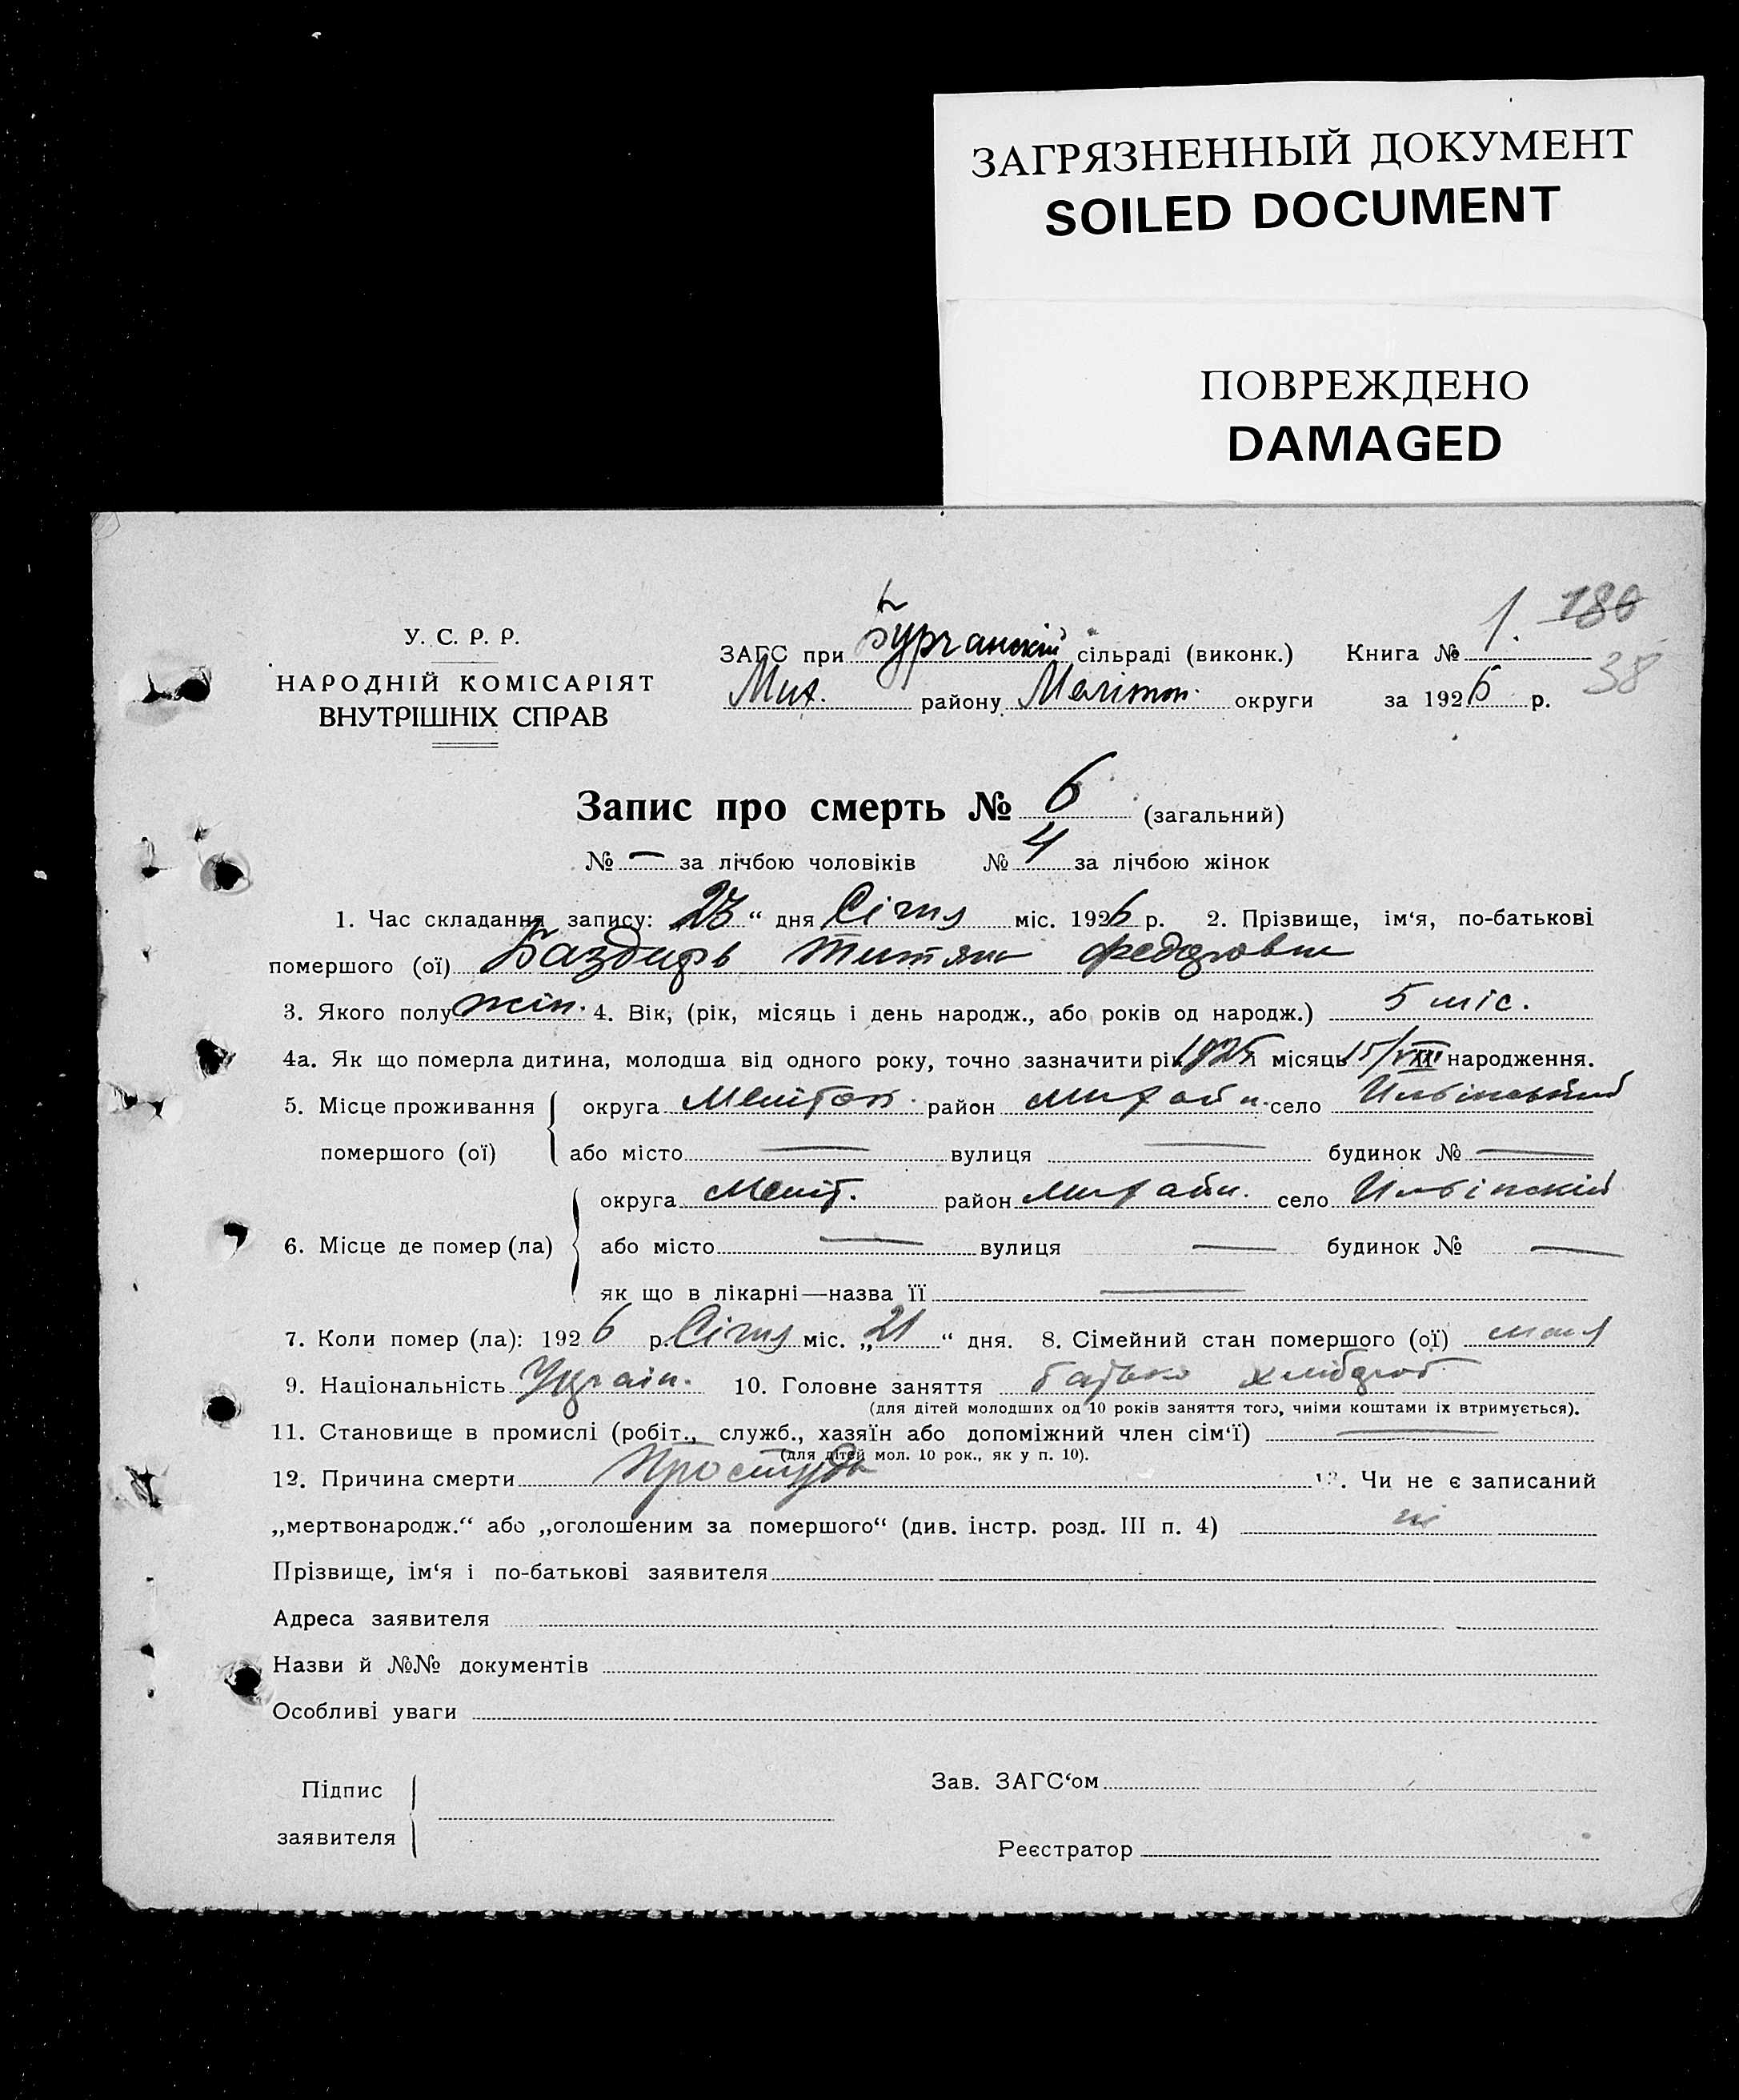 ЗАГРЯЗНЕННЫЙ ДОКУМЕНТ
SOILED DOCUMENT
ПОВРЕЖДЕНО
DAMAGED
У. С. Р. Р.
НАРОДНІЙ КОМІСАРІЯТ
ВНУТРІШНІХ СПРАВ
ЗАГС при Бурчанскій сільраді (виконк.) Книга № 1. 180
Мих. району Мелітоп. округи за 1926 р. 38
Запис про смерть № 6 (загальний)
№ — за лічбою чоловіків № 4 за лічбою жінок
1. Час складання запису: 23 “ дня Січня міс. 1926 р. 2. Прізвище, ім‘я, по-батькові
помершого (ої) Баздирь Титяна Федоровна
3. Якого полу жін. 4. Вік, (рік, місяць і день народж., або років од народж.) 5 міс.
4а. Як що померла дитина, молодша від одного року, точно зазначити рік 1925 місяць 15/VIII народження.
5. Місце проживання округа Меліtоп. район Михайл. село
помершого (ої) або місто — вулиця — будинок № —
округа Меліт. район Михайл. село Ильінскій
6. Місце де помер (ла) або місто — вулиця — будинок № —
як що в лікарні—назва її —
7. Коли помер (ла): 1926 р. Січня міс. „ 21 “ дня. 8. Сімейний стан помершого (ої)
9. Національність Україн. 10. Головне заняття батько хлібороб
(для дітей молодших од 10 років заняття того, чиїми коштами їх втримується).
11. Становище в промислі (робіт., служб., хазяїн або допоміжний член сім‘ї) —
(для дітей мол. 10 рок., як у п. 10).
12. Причина смерти Простуда 13. Чи не є записаний
„мертвонародж.“ або „оголошеним за помершого“ (див. інстр. розд. III п. 4) ні
Прізвище, ім‘я і по-батькові заявителя
Адреса заявителя
Назви й №№ документів
Особливі уваги
Підпис
заявителя
Зав. ЗАГС‘ом
Реєстратор